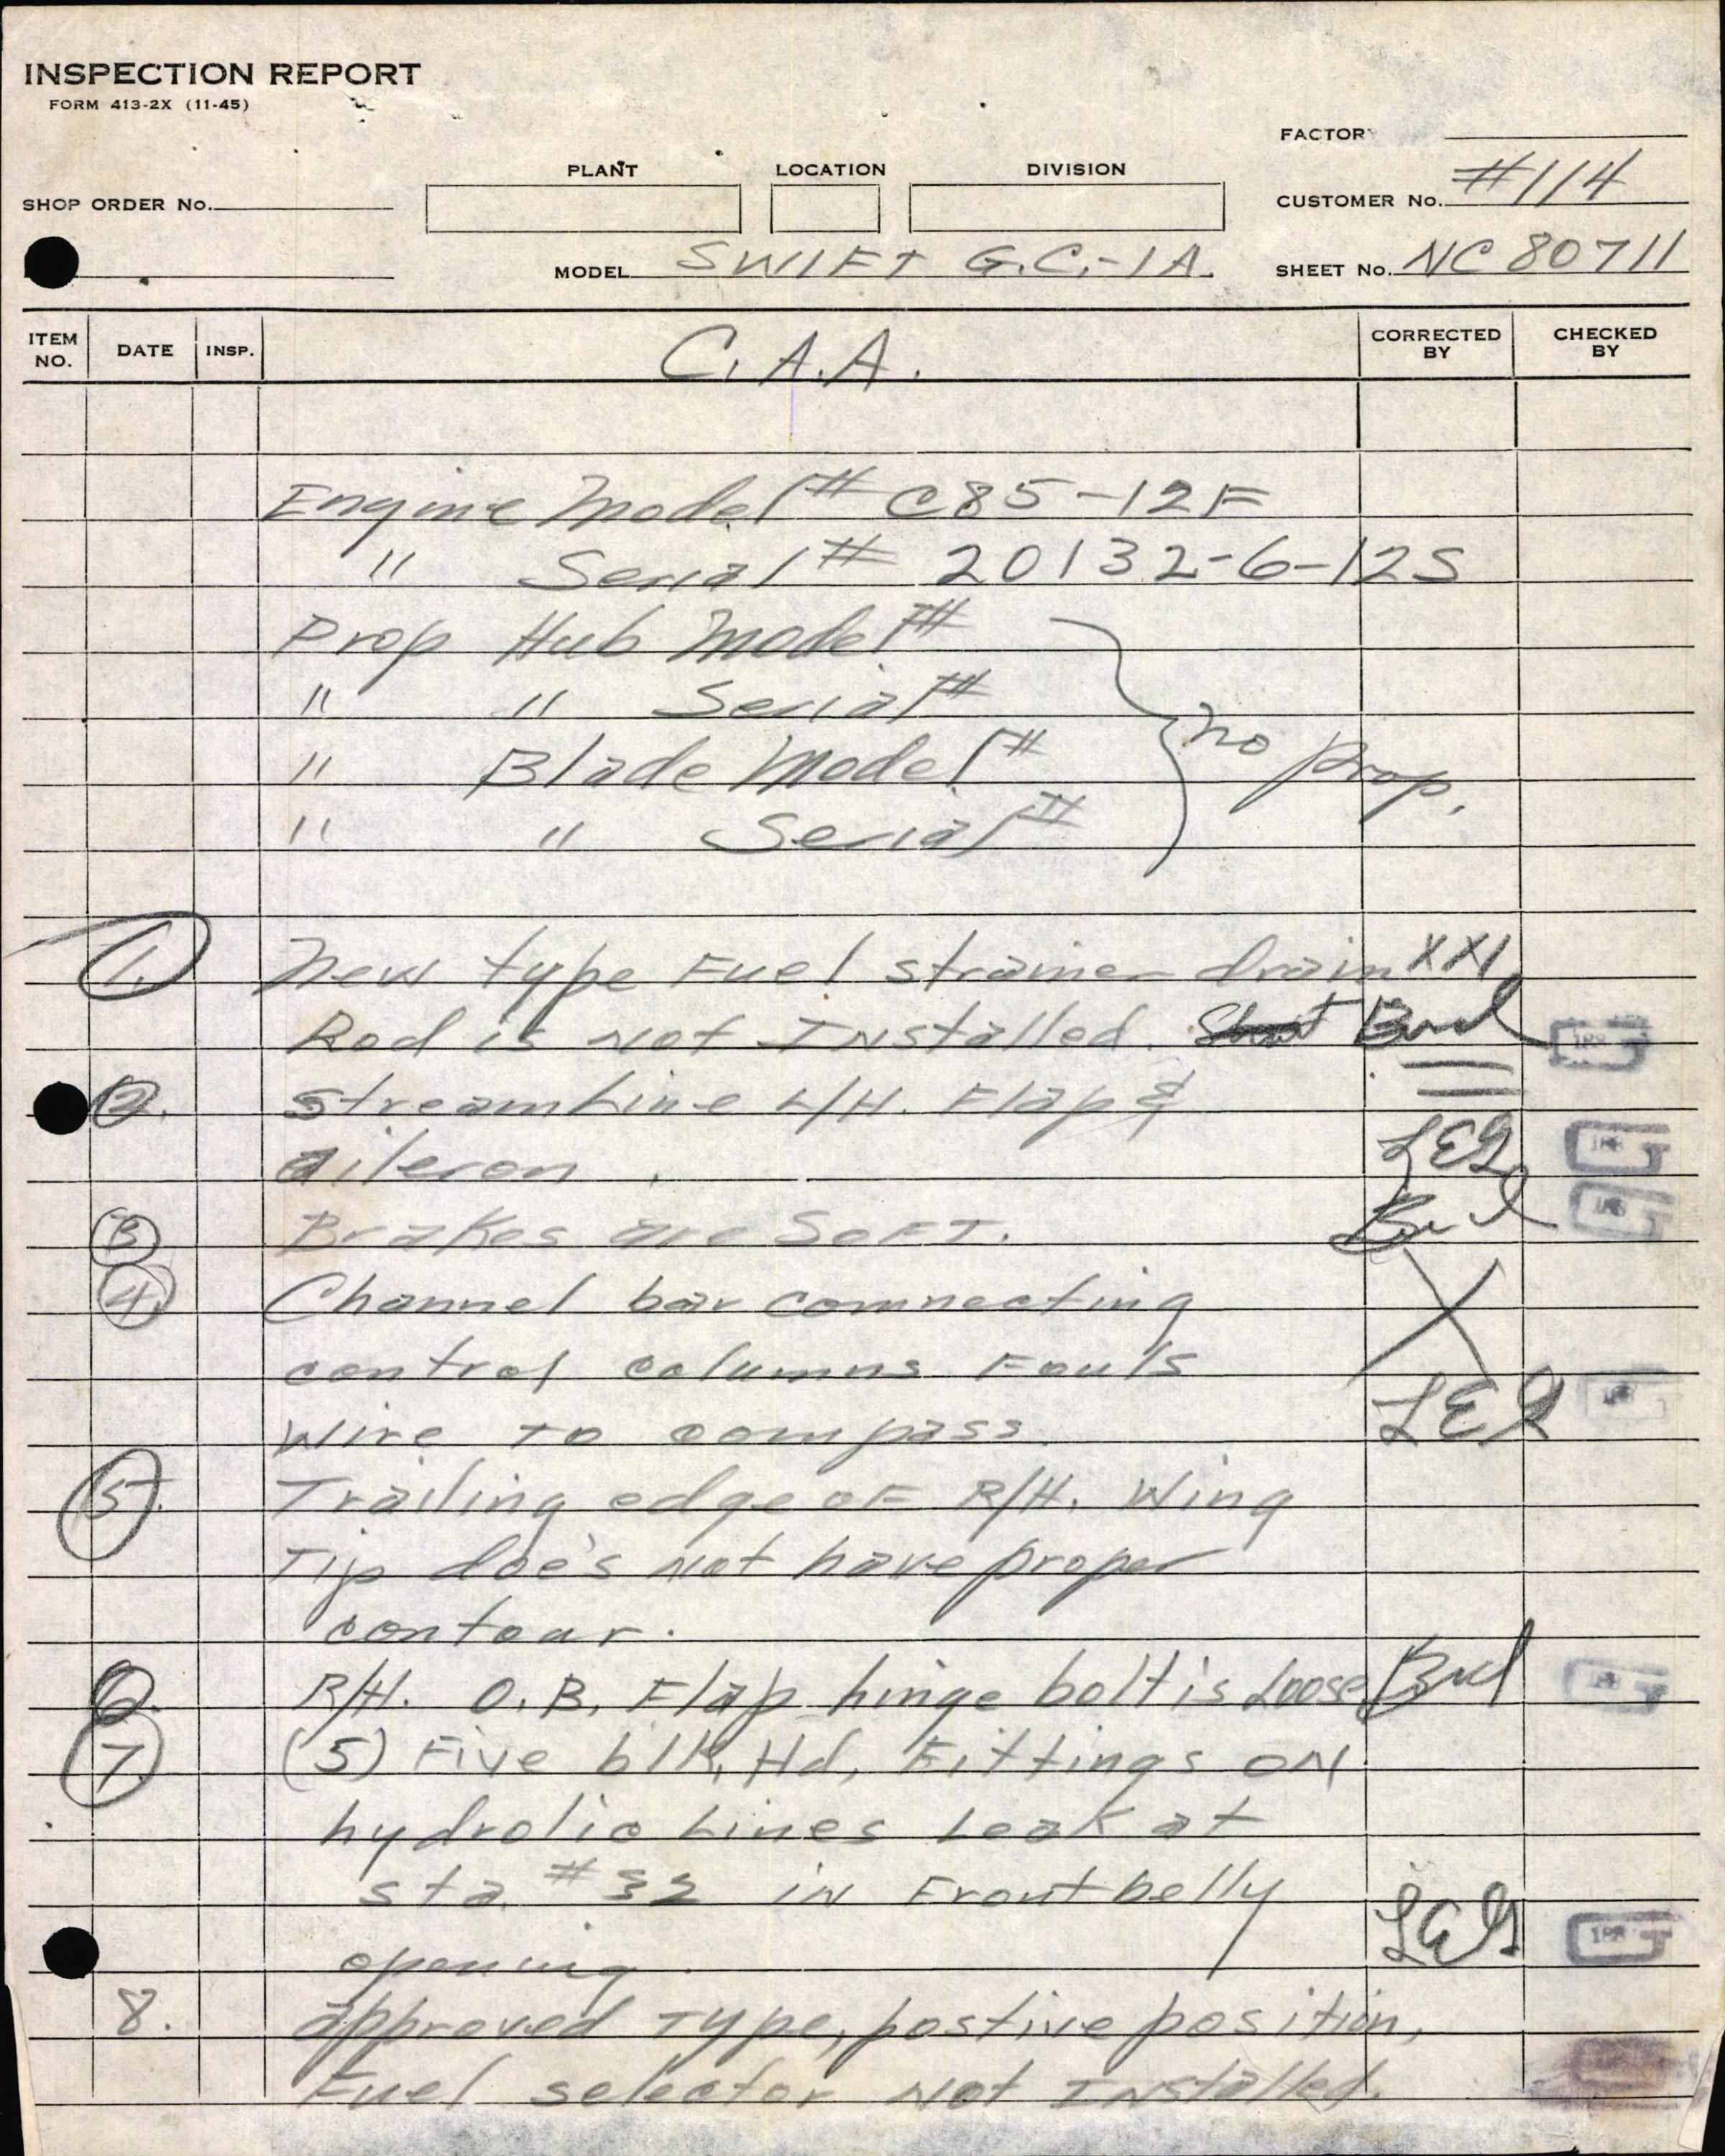 INSPECTION REPORT
FORM 413-2X (11-45)
FACTORY
PLANT LOCATION DIVISION
SHOP ORDER No. CUSTOMER No. #114
MODEL SWIFT G.C.-1A. SHEET No. NC 80711
ITEM NO. DATE INSP. C.A.A. CORRECTED BY CHECKED BY
Engine Model # C85-12F
" Serial # 20132-6-12S
Prop Hub Model #
" " Serial #
" Blade Model # no prop.
" " Serial #
1. New type Fuel strainer drain XXI
Rod is not Installed. Bud
2. Streamline L/H. Flap &
aileron. LEG
3 Brakes are SoFT. Bud
4. Channel bar connecting
control columns Fouls
Wire To compass. LEG
5. Trailing edge oF R/H. Wing
Tip doe's not have proper
contour.
6. R/H. O.B. Flap hinge bolt is Loose Bud
7. (5) Five blk. Hd. Fittings ON
hydrolic Lines Leak at
sta. #32 in Front belly
opening. LEG
8. approved Type, postive position,
Fuel selector Not Installed.